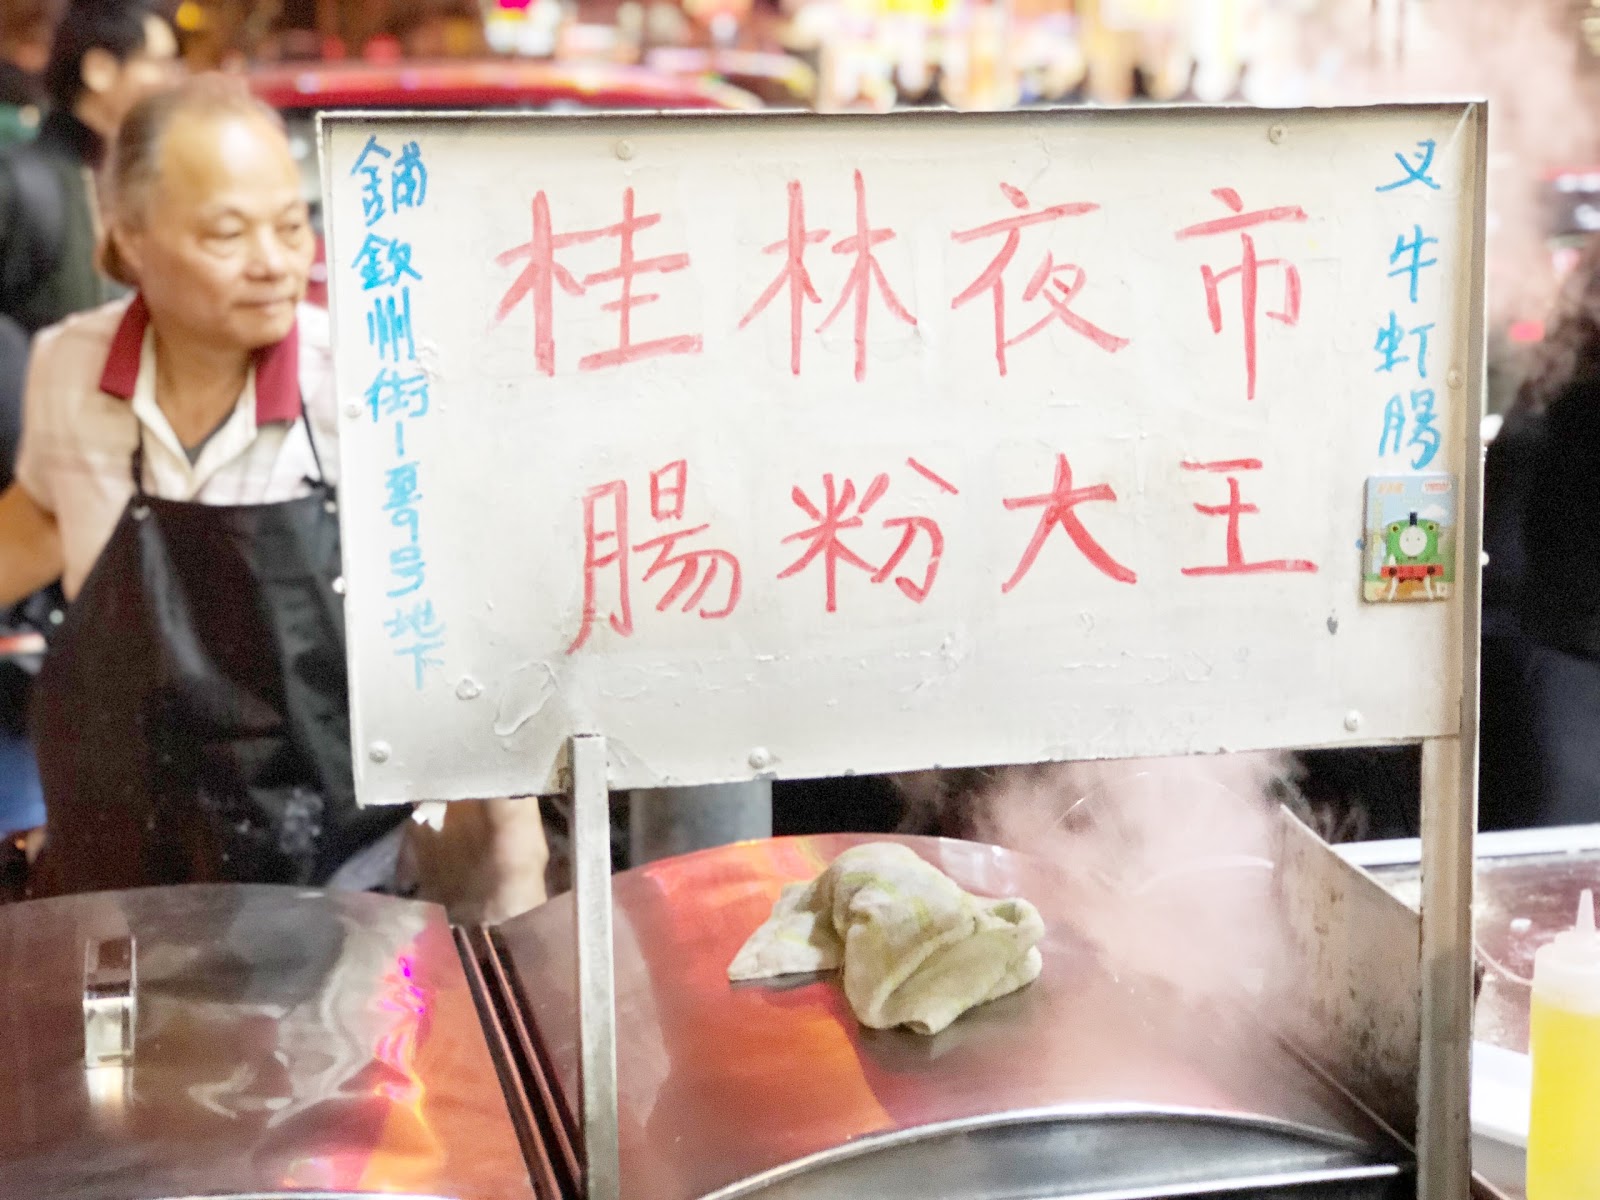 桂林夜市
腸粉大王
叉牛虾腸
鋪欽州街1至9号地下